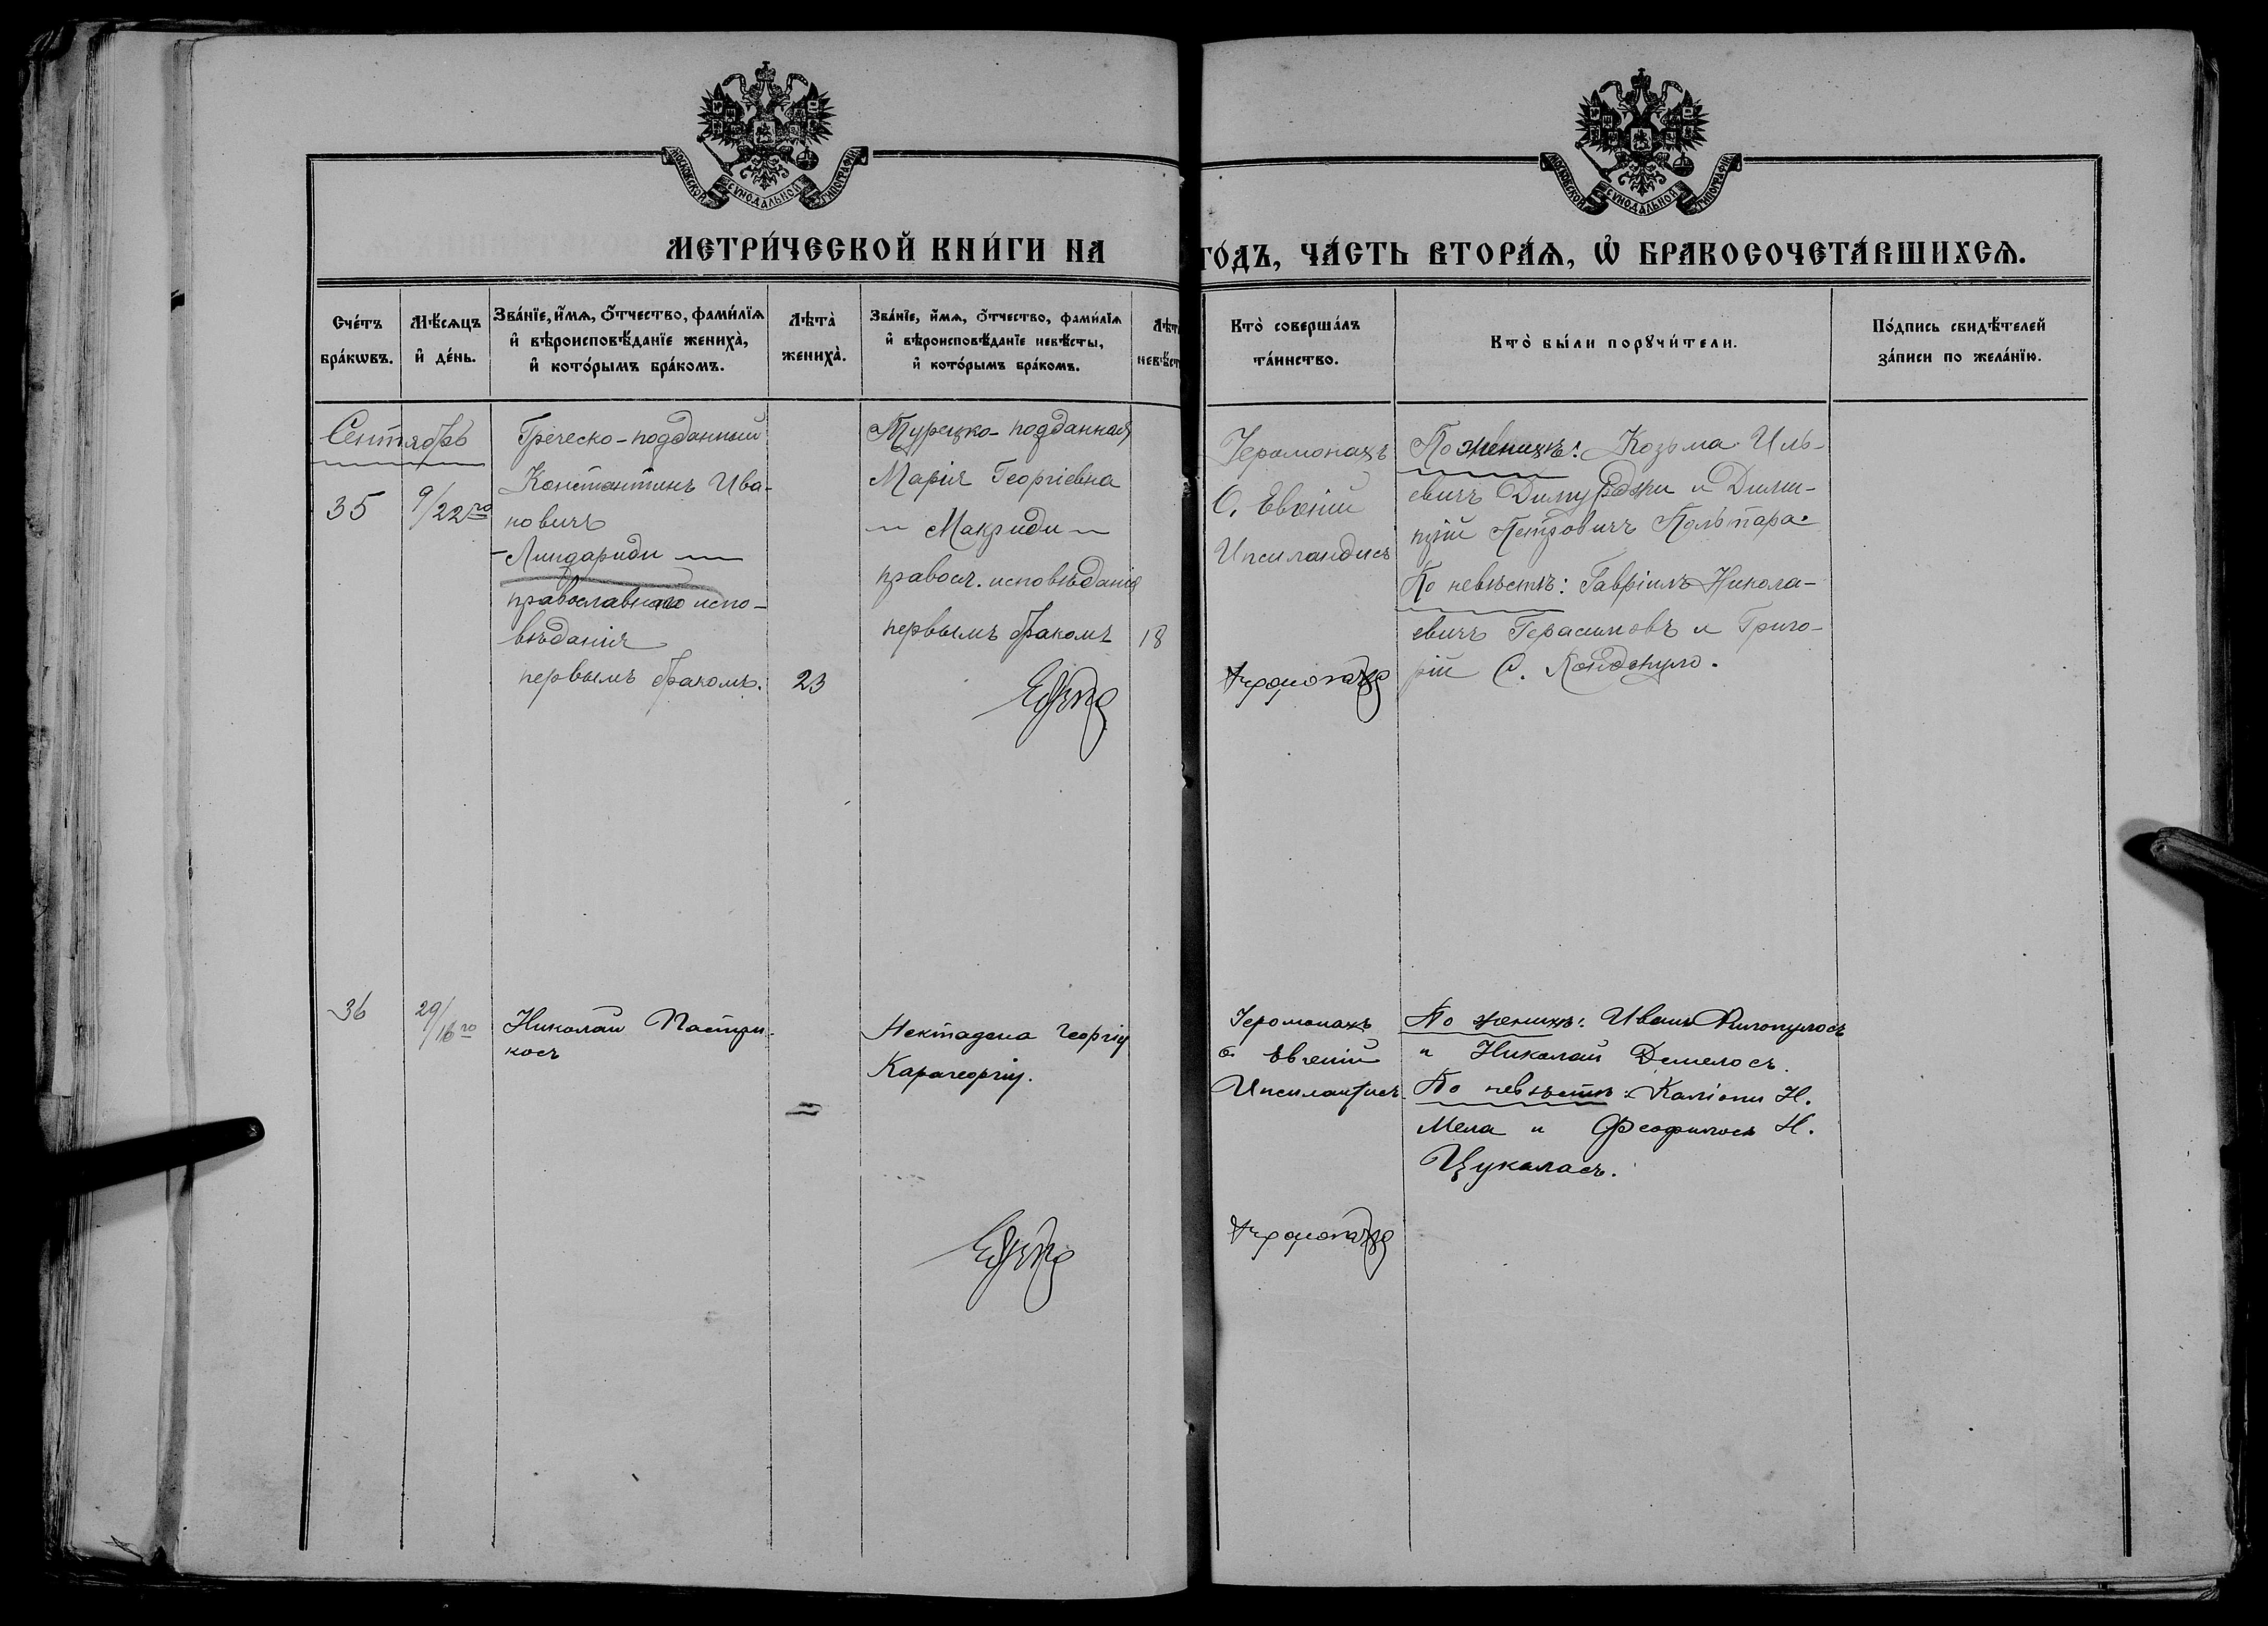 МОСКОВСКОЙ СѴНОДАЛЬНОЙ ТИПОГРАФІИ
МОСКОВСКОЙ СѴНОДАЛЬНОЙ ТИПОГРАФІИ
МЕТРИ́ЧЕСКОЙ КНИ́ГИ НА ГО́ДЪ, ЧА́СТЬ ВТОРА́Ѧ, Ѡ БРАКОСОЧЕТА́ВШИХСѦ.
Сче́тъ
бра́кѡвъ.
Мѣ́сѧцъ
и҆ де́нь.
Зва́нїе, и҆́мѧ, ѻ҆́тчество, фами́лїѧ
и҆ вѣроисповѣ́данїе жениха̀,
и҆ кото́рымъ бра́комъ.
Лѣта̀
жениха̀.
Зва́нїе, и҆́мѧ, ѻ҆́тчество, фами́лїѧ
и҆ вѣроисповѣ́данїе невѣ́сты,
и҆ кото́рымъ бра́комъ.
Лѣт
невѣст
Кто̀ соверша́лъ
та́инство.
Кто̀ бы́ли порꙋчи́тели.
По́дпись свидѣ́телей
за́писи по жела́нїю.
Сентябрь
35
9/22го
Греческо-подданный
Константинъ Ива-
новичъ
Линдариди
православнаго испо-
вѣданія
первымъ бракомъ.
23
Турецко-подданная
Марія Георгіевна
Макриди
правосл. исповѣданія
первымъ бракомъ
18
Іеромонахъ
О. Евгеній
Ипсиландисъ
По женихѣ: Козьма Иль-
евичъ и Дими-
трій Петровичъ
По невѣстѣ: Гавріилъ Никола-
евичъ Герасимовъ и Григо-
рій С.
36
29/16го
Николай Пастри-
косъ
Георгіу
Карагеоргіу.
Іеромонахъ
о. Евгеній
Ипсилантисъ
По женихѣ: Иванъ
и Николай
По невѣстѣ: Н.
Мела и Феофилосъ Н.
Цукаласъ.